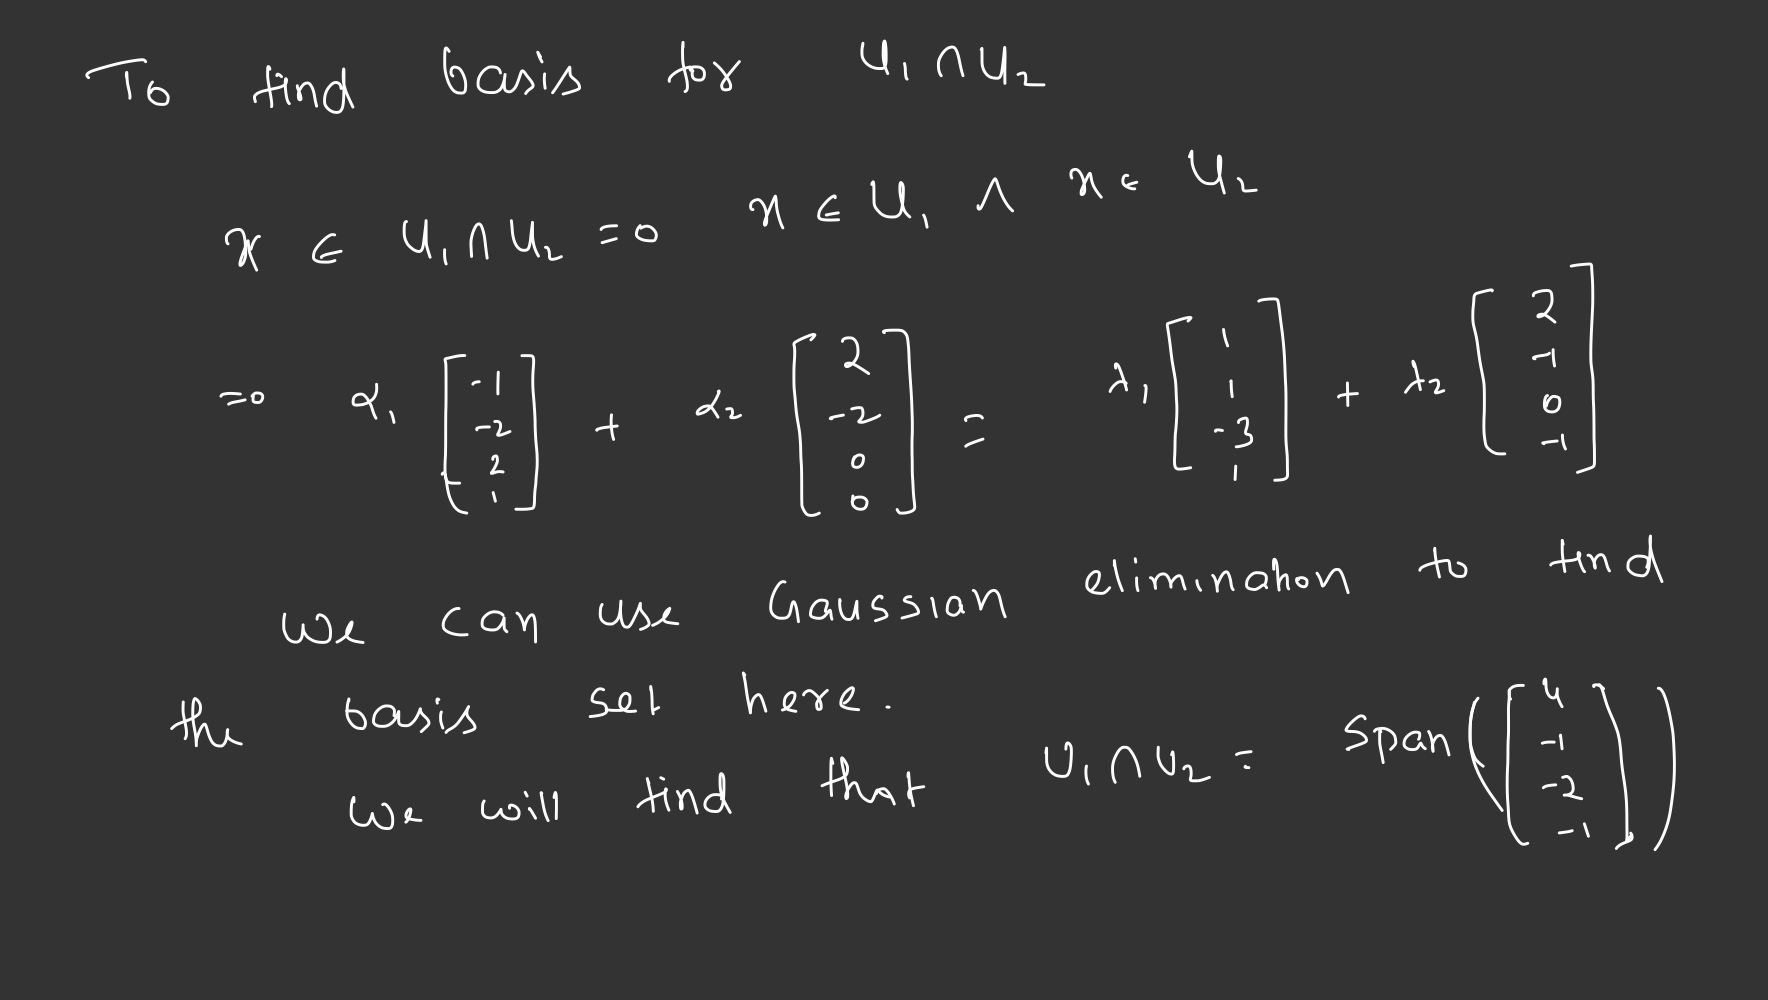 To find basis for U₁ ∩ U₂
x ∈ U₁ ∩ U₂ => x ∈ U₁ ∧ x ∈ U₂
=> α₁ [-1 -2 2 1] + α₂ [2 -2 0 0] = λ₁ [1 1 -3 1] + λ₂ [2 -1 0 -1]
We can use Gaussian elimination to find
the basis set here.
We will find that U₁ ∩ U₂ = Span([4 -1 -2 -1])